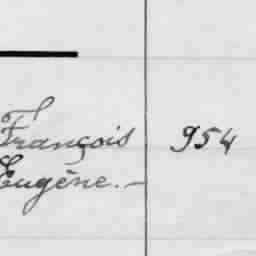 François 954
Eugène.-